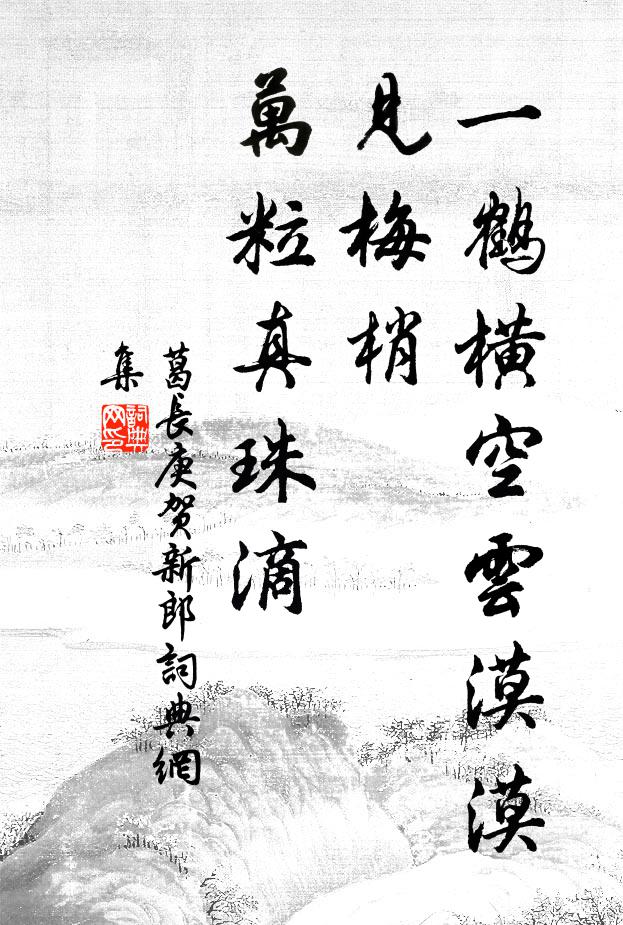 一鶴橫空雲漠漠
見梅梢
萬粒真珠滴
葛長庚賀新郎詞典網
集
詞典
网印